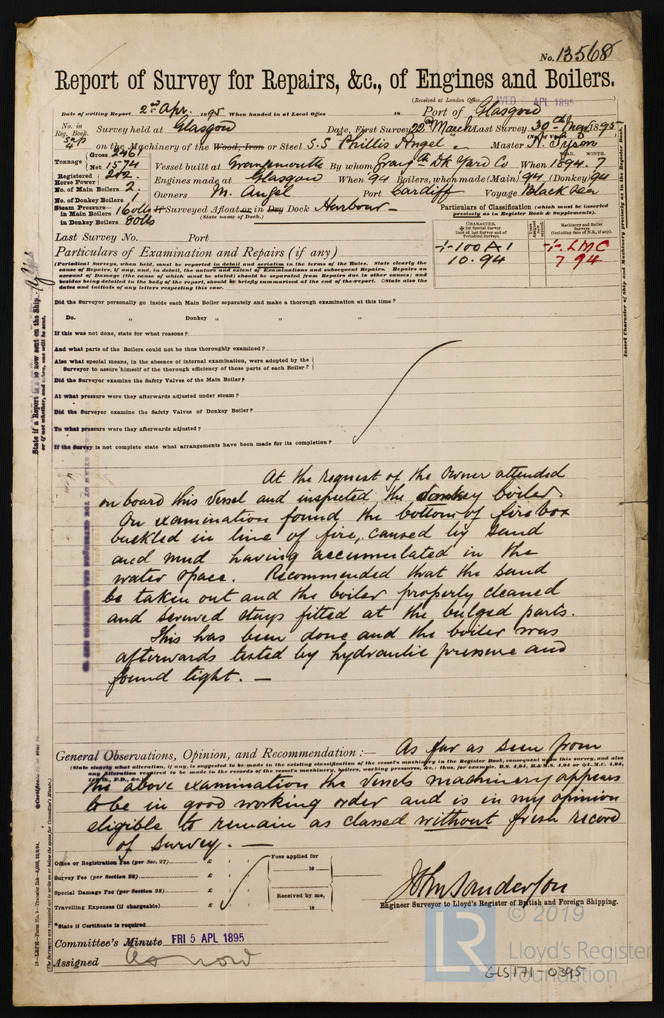 No. 13568
Report of Survey for Repairs, &c., of Engines and Boilers.
(Received at London Office WED APL 1895
Date of writing Report 2nd Apr. 1895 When handed in at Local Office 18 Port of Glasgow
No. in Reg. Book. Survey held at Glasgow Date, First Survey 22nd March Last Survey 30th Mar 1895
on the Machinery of the Wood, Iron or Steel S.S Phillis Angel Master N. Tyson
Tonnage Gross 2461 Net 1574 Vessel built at Grangemouth By whom Grange Dk Yard Co When 1894 7
Registered Horse Power 202 Engines made at Glasgow When 94 Boilers, when made (Main) 94 (Donkey) 94
No. of Main Boilers 2. Owners M. Angel Port Cardiff Voyage Black Sea
No. of Donkey Boilers 1
Steam Pressure in Main Boilers 160 lbs If Surveyed Afloat or in Dry Dock Harbour
in Donkey Boilers 80 lbs (State name of Dock.)
Particulars of Classification (which must be inserted precisely as in Register Book & Supplements).
Last Survey No. Port
+100A1 +LMC
10.94 7 94
Particulars of Examination and Repairs (if any)
(Periodical Surveys, when held, must be reported in detail and seriatim in the terms of the Rules. State clearly the
cause of Repairs, if any, and, in detail, the nature and extent of Examinations and subsequent Repairs. Repairs on
account of Damage (the cause of which must be stated) should be separated from Repairs due to other causes; and
besides being detailed in the body of the report, should be briefly summarised at the end of the report. (State also the
dates and initials of any letters respecting this case.
Did the Surveyor personally go inside each Main Boiler separately and make a thorough examination at this time?
Do. „ Donkey „ „ „
If this was not done, state for what reasons?
And what parts of the Boilers could not be thoroughly examined?
Also what special means, in the absence of internal examination, were adopted by the
Surveyor to assure himself of the thorough efficiency of those parts of each Boiler?
Did the Surveyor examine the Safety Valves of the Main Boiler?
At what pressure were they afterwards adjusted under steam?
Did the Surveyor examine the Safety Valves of Donkey Boiler?
To what pressure were they afterwards adjusted?
If the Survey is not complete state what arrangements have been made for its completion?
At the request of the Owner attended
on board this vessel and inspected the donkey boiler.
On examination found the bottom of fire box
buckled in line of fire, caused by sand
and mud having accumulated in the
water space. Recommended that the sand
be taken out and the boiler properly cleaned
and screwed stays fitted at the bulged parts.
This has been done and the boiler was
afterwards tested by hydraulic pressure and
found tight. —
General Observations, Opinion, and Recommendation:— As far as seen from
(State clearly what alteration, if any, is suggested to be made in the existing classification of the vessel's machinery in the Register Book, consequent upon this survey, and also
the above examination the vessels machinery appears
to be in good working order and is in my opinion
eligible to remain as classed without fresh record
of survey. —
Office or Registration Fee (per Sec. 27) £ : : Fees applied for
Survey Fee (per Section 28) £ : : 18
Special Damage Fee (per Section 28) £ : : Received by me,
Travelling Expenses (if chargeable) £ : : 18
John Sanderson
Engineer Surveyor to Lloyd's Register of British and Foreign Shipping.
*State if Certificate is required
Committee's Minute FRI 5 APL 1895
Assigned as now
© 2019
LR Lloyd's Register
Foundation
GLS171-0395